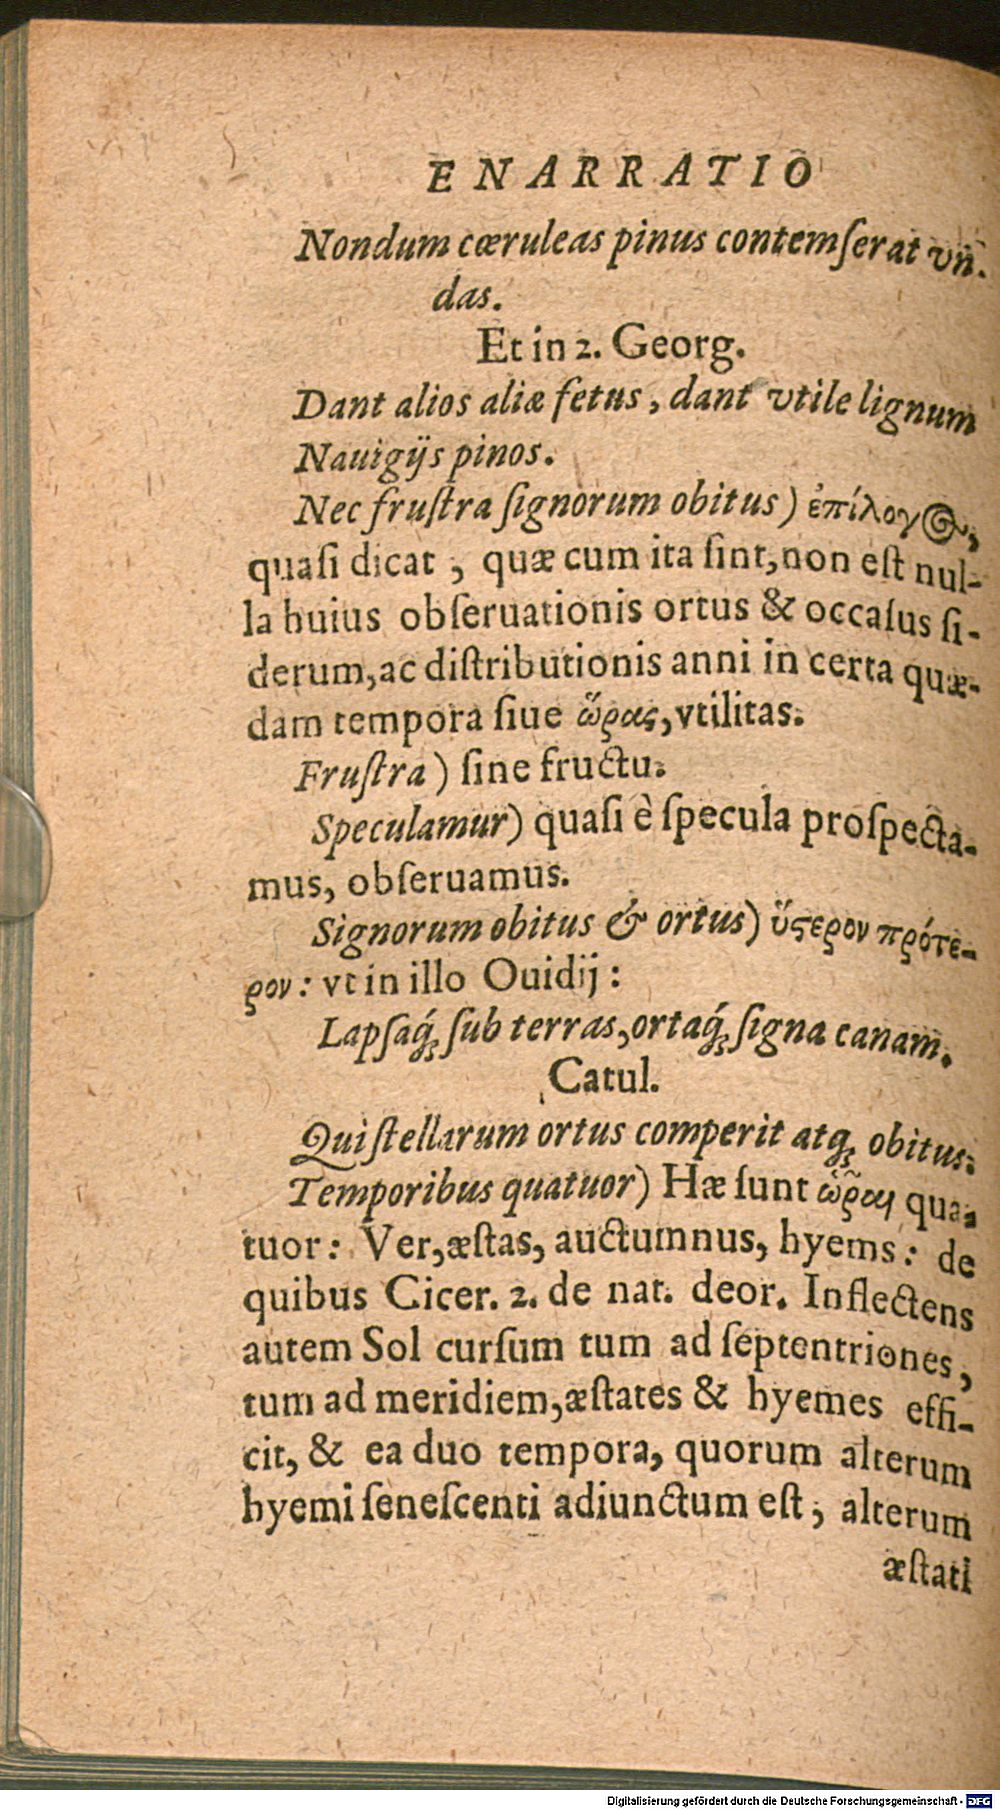 ENARRATIO
Nondum cæruleas pinus contemſerat vn-
das.
Et in 2. Georg.
Dant alios aliæ fetus, dant vtile lignum
Nauigijs pinos.
Nec fruſtra ſignorum obitus) ἐπίλογος,
quaſi dicat, quæ cum ita ſint, non eſt nul-
la huius obſeruationis ortus & occaſus ſi-
derum, ac diſtributionis anni in certa quæ-
dam tempora ſiue ὥρας, vtilitas.
Fruſtra) ſine fructu.
Speculamur) quaſi è ſpecula proſpecta-
mus, obſeruamus.
Signorum obitus & ortus) ὕϛερον πρότε-
ρον: vt in illo Ouidij:
Lapſaq́; ſub terras, ortaq́; ſigna canam.
Catul.
Qui ſtellarum ortus comperit atq; obitus.
Temporibus quatuor) Hæ ſunt ὧραι qua-
tuor: Ver, æſtas, auctumnus, hyems: de
quibus Cicer. 2. de nat. deor. Inflectens
autem Sol curſum tum ad ſeptentriones,
tum ad meridiem, æſtates & hyemes effi-
cit, & ea duo tempora, quorum alterum
hyemi ſeneſcenti adiunctum eſt, alterum
æſtati
Digitalisierung gefördert durch die Deutsche Forschungsgemeinschaft - DFG